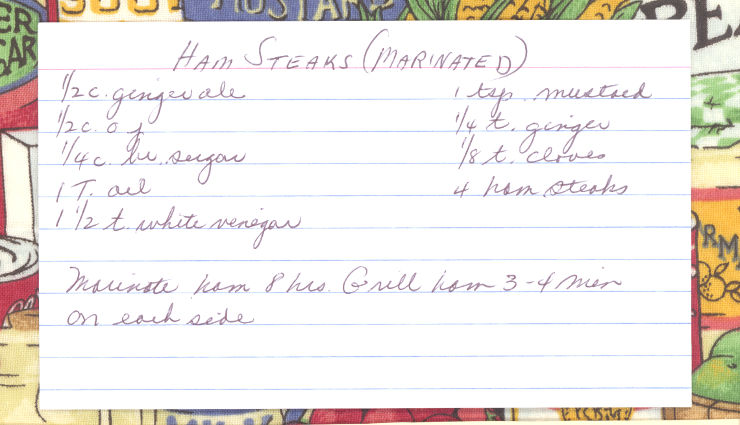 HAM STEAKS (MARINATED)
1/2 c. ginger ale
1/2 c. o j
1/4 c. br. sugar
1 T. oil
1 1/2 t. white venegar
1 tsp. mustard
1/4 t. ginger
1/8 t. cloves
4 ham steaks
Marinate ham 8 hrs. Grill ham 3-4 min
on each side